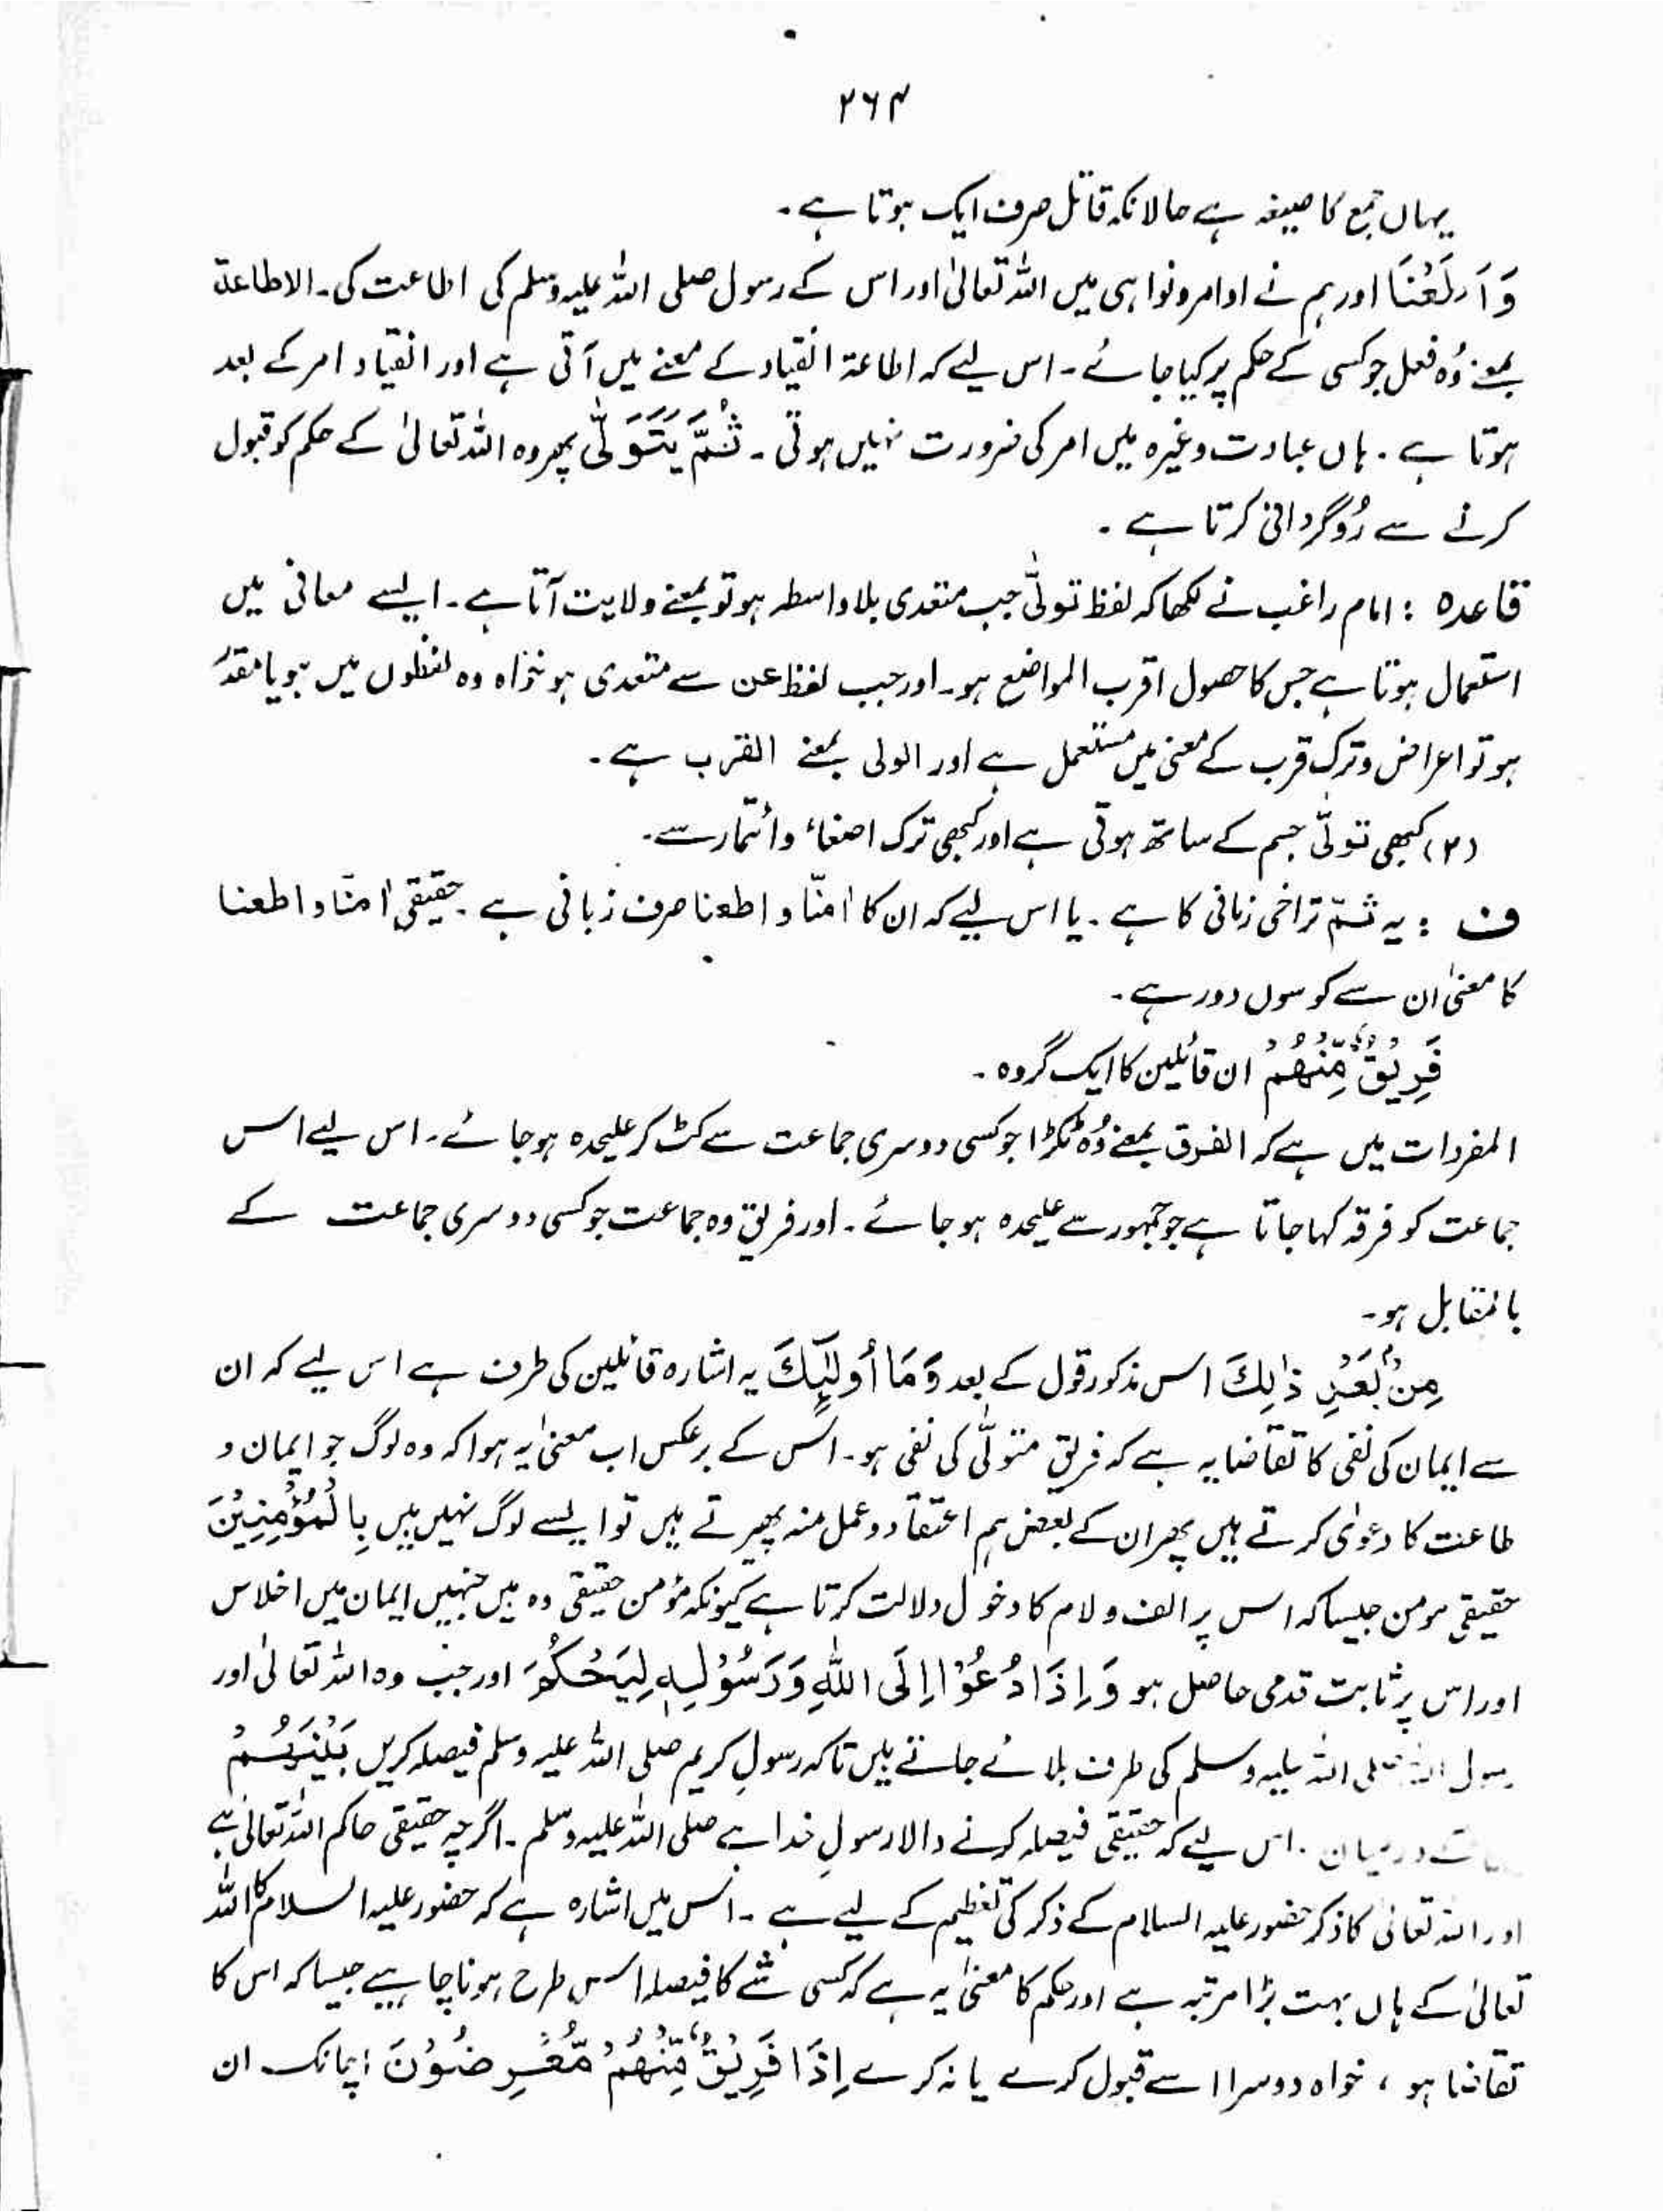 ۲۶۴
یہاں جمع کا صیغہ ہے حالانکہ قائل صرف ایک ہوتا ہے۔
وَاَطَعْنَا اور ہم نے اوامر و نواہی میں اللہ تعالیٰ اور اس کے رسول صلی اللہ علیہ وسلم کی اطاعت کی۔ الاطاعۃ
بمعنے وُہ فعل جو کسی کے حکم پر کیا جائے۔ اس لیے کہ اطاعۃ انقیاد کے معنے میں آتی ہے اور انقیاد امر کے بعد
ہوتا ہے۔ ہاں عبادت وغیرہ میں امر کی ضرورت نہیں ہوتی۔ ثُمَّ يَتَوَلّٰى پھر وہ اللہ تعالیٰ کے حکم کو قبول
کرنے سے رُوگردانی کرتا ہے۔
قاعدہ : امام راغب نے لکھا کہ لفظ تولّٰی جب متعدی بلاواسطہ ہو تو بمعنے ولایت آتا ہے۔ ایسے معانی میں
استعمال ہوتا ہے جس کا حصول اقرب المواضع ہو۔ اور جب لفظ عن سے متعدی ہو خواہ وہ لفظوں میں ہو یا مقدر
ہو تو اعراض و ترک قرب کے معنیٰ میں مستعمل ہے اور الولی بمعنے القرب ہے۔
(۲) کبھی تولّی جسم کے ساتھ ہوتی ہے اور کبھی ترک اصغاء وائتمار سے۔
ف : یہ ثمّ تراخی زمانی کا ہے۔ یا اس لیے کہ ان کا اٰمنّا و اطعنا صرف زبانی ہے۔ حقیقی اٰمنّا و اطعنا
کا معنیٰ ان سے کوسوں دور ہے۔
فَرِيْقٌ مِّنْهُمْ ان قائلین کا ایک گروہ۔
المفردات میں ہے کہ الفرق بمعنے وُہ ٹکڑا جو کسی دوسری جماعت سے کٹ کر علیحدہ ہو جائے۔ اس لیے اس
جماعت کو فرقہ کہا جاتا ہے جو جمہور سے علیحدہ ہو جائے۔ اور فریق وہ جماعت جو کسی دوسری جماعت کے
بالمقابل ہو۔
مِنْۢ بَعْدِ ذٰلِكَ اس مذکور قول کے بعد وَمَا اُولٰٓئِكَ یہ اشارہ قائلین کی طرف ہے اس لیے کہ ان
سے ایمان کی نفی کا تقاضا یہ ہے کہ فریق متولّی کی نفی ہو۔ اس کے برعکس اب معنیٰ یہ ہوا کہ وہ لوگ جو ایمان و
طاعت کا دعویٰ کرتے ہیں پھر ان کے بعض ہم اعتقاد و عمل منہ پھیرتے ہیں تو ایسے لوگ نہیں ہیں بِالْمُؤْمِنِيْنَ
حقیقی مومن جیسا کہ اس پر الف و لام کا دخول دلالت کرتا ہے کیونکہ مؤمن حقیقی وہ ہیں جنہیں ایمان میں اخلاص
اور اس پر ثابت قدمی حاصل ہو وَاِذَا دُعُوْٓا اِلَى اللّٰهِ وَرَسُوْلِهٖ لِيَحْكُمَ اور جب وہ اللہ تعالیٰ اور
رسول اللہ صلی اللہ علیہ وسلم کی طرف بلائے جاتے ہیں تاکہ رسولِ کریم صلی اللہ علیہ وسلم فیصلہ کریں بَيْنَهُمْ
درمیان۔ اس لیے کہ حقیقی فیصلہ کرنے والا رسولِ خدا ہے صلی اللہ علیہ وسلم۔ اگرچہ حقیقی حاکم اللہ تعالیٰ ہے
اور اللہ تعالیٰ کا ذکر حضور علیہ السلام کے ذکر کی تعظیم کے لیے ہے۔ اس میں اشارہ ہے کہ حضور علیہ السلام کا اللہ
تعالیٰ کے ہاں بہت بڑا مرتبہ ہے اور حکم کا معنیٰ یہ ہے کہ کسی شے کا فیصلہ اس طرح ہونا چاہیے جیسا کہ اس کا
تقاضا ہو ، خواہ دوسرا اسے قبول کرے یا نہ کرے اِذَا فَرِيْقٌ مِّنْهُمْ مُّعْرِضُوْنَ اچانک ان